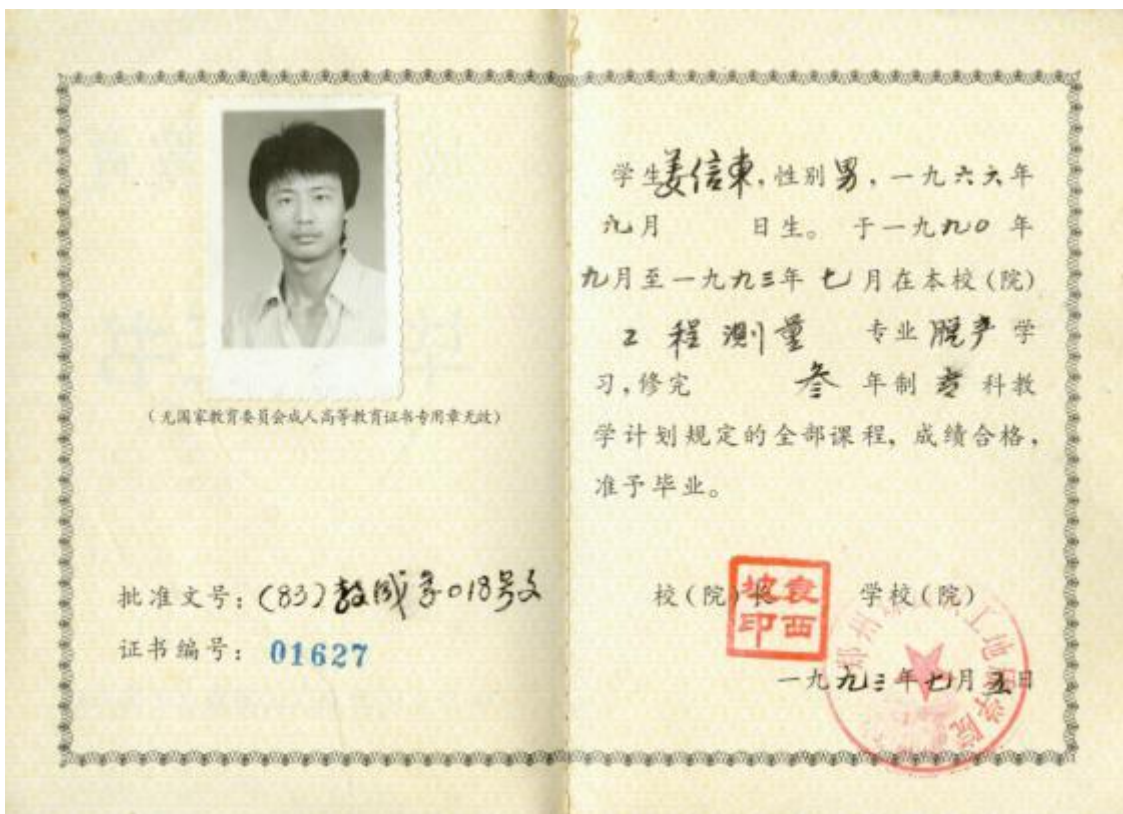 （无国家教育委员会成人高等教育证书专用章无效）
批准文号：(83)教成字018号文
证书编号：01627
学生姜信東，性别男，一九六六年
九月 日生。于一九九0年
九月至一九九三年七月在本校（院）
工程测量 专业脱产学
习，修完 叁年制专科教
学计划规定的全部课程，成绩合格，
准予毕业。
校（院）长 学校（院）
袁西坡印
一九九三年七月五日